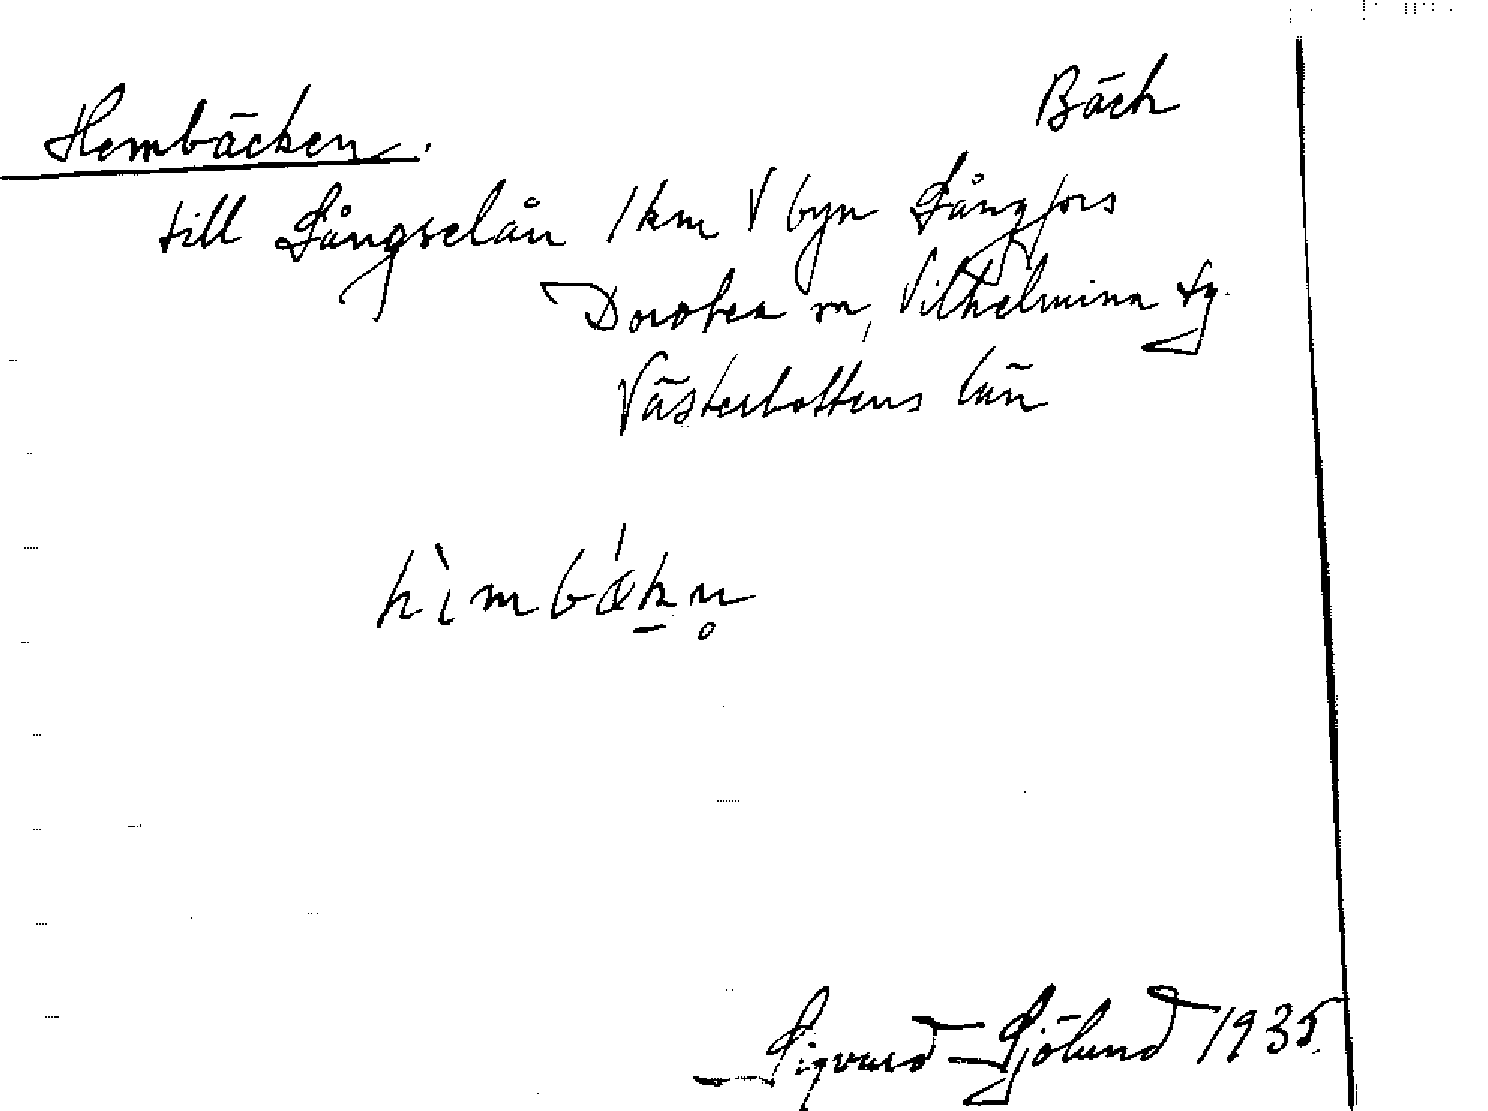 Bäck
Hembäcken.
till Långselån 1 km V byn Långfors
Dorotea sn, Vilhelmina tg.
Västerbottens län
hìmbǽk̠n̥
Sigvard Sjölund 1935.